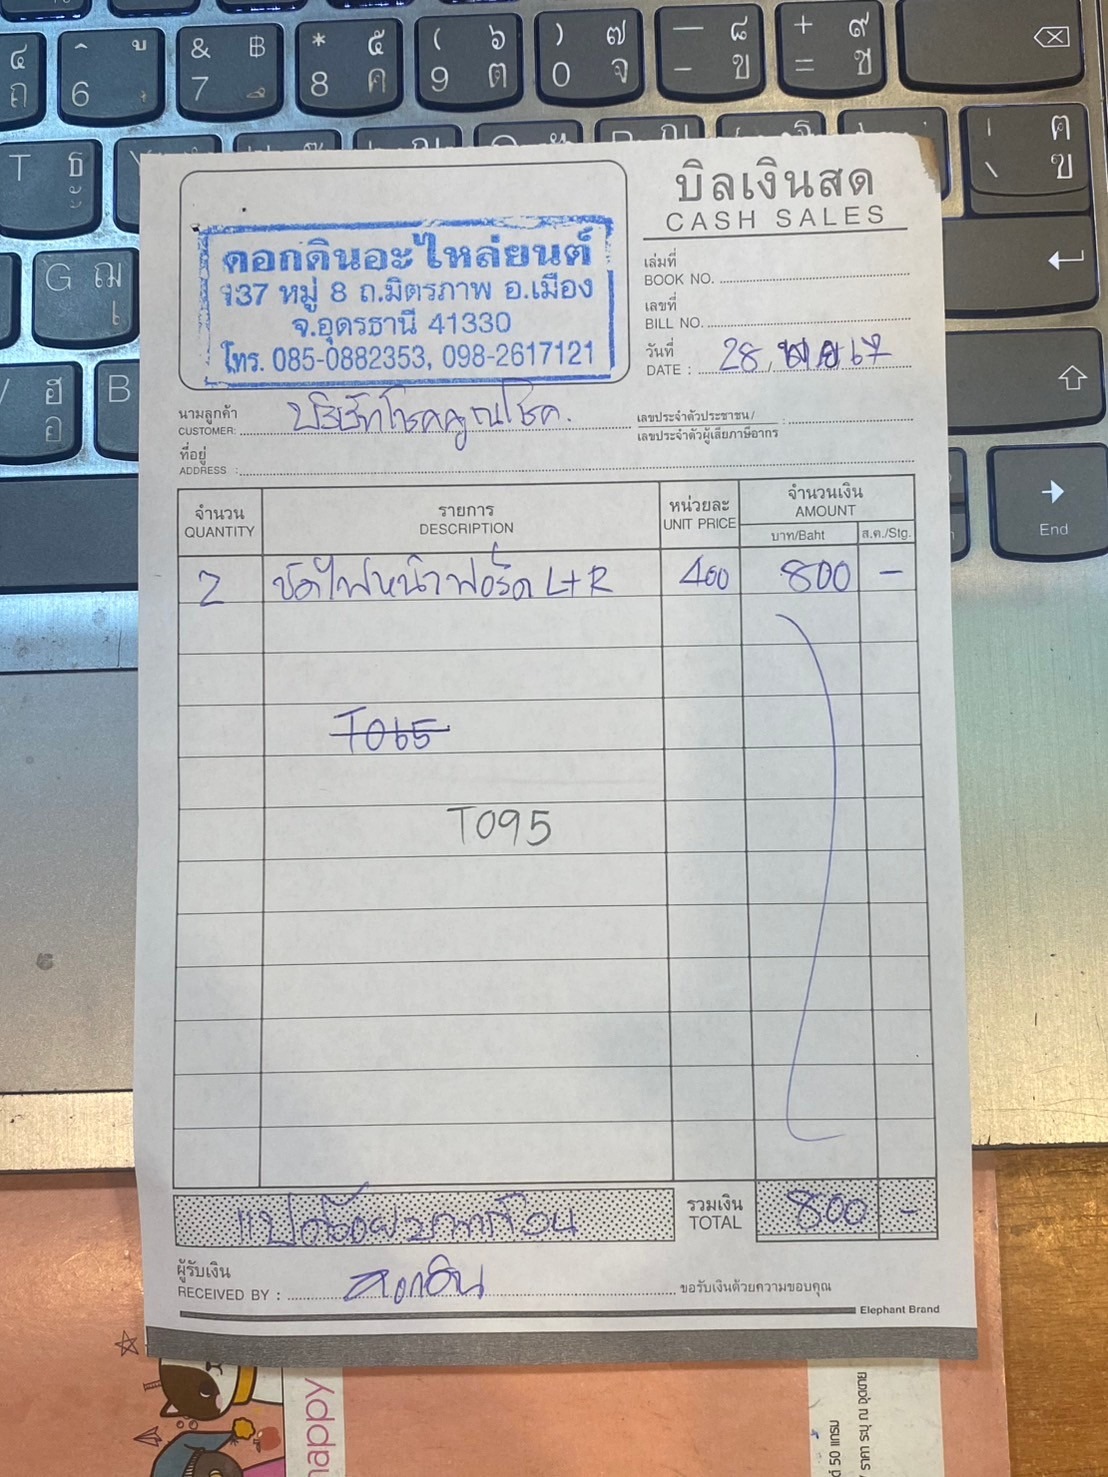 ๔ ถ ^ 6 บ ู & 7 ฿ ึ * 8 ๕ ค ( 9 ๖ ต ) 0 ๗ จ — - ๘ ข + = ๙ ช
T ธ
| \ ฅ ฃ
G ฌ เ
B
End
บิลเงินสด
CASH SALES
ดอกดินอะไหล่ยนต์
137 หมู่ 8 ถ.มิตรภาพ อ.เมือง
จ.อุดรธานี 41330
โทร. 085-0882353, 098-2617121
เล่มที่
BOOK NO.
เลขที่
BILL NO.
วันที่
DATE : 28, พย 67
นามลูกค้า
CUSTOMER: บริษัทโชคคูณโชค.
เลขประจำตัวประชาชน/
เลขประจำตัวผู้เสียภาษีอากร :
ที่อยู่
ADDRESS :
จำนวน รายการ หน่วยละ จำนวนเงิน
QUANTITY DESCRIPTION UNIT PRICE AMOUNT
บาท/Baht ส.ต./Stg.
2 ขัดไฟหน้าฟอร์ด L+R 400 800 -
T065
T095
แปดร้อยบาทถ้วน รวมเงิน TOTAL 800 -
ผู้รับเงิน
RECEIVED BY : ดอกดิน ขอรับเงินด้วยความขอบคุณ
Elephant Brand
happy
50 แกรม
ราคา ระบุ ณ จุดขาย